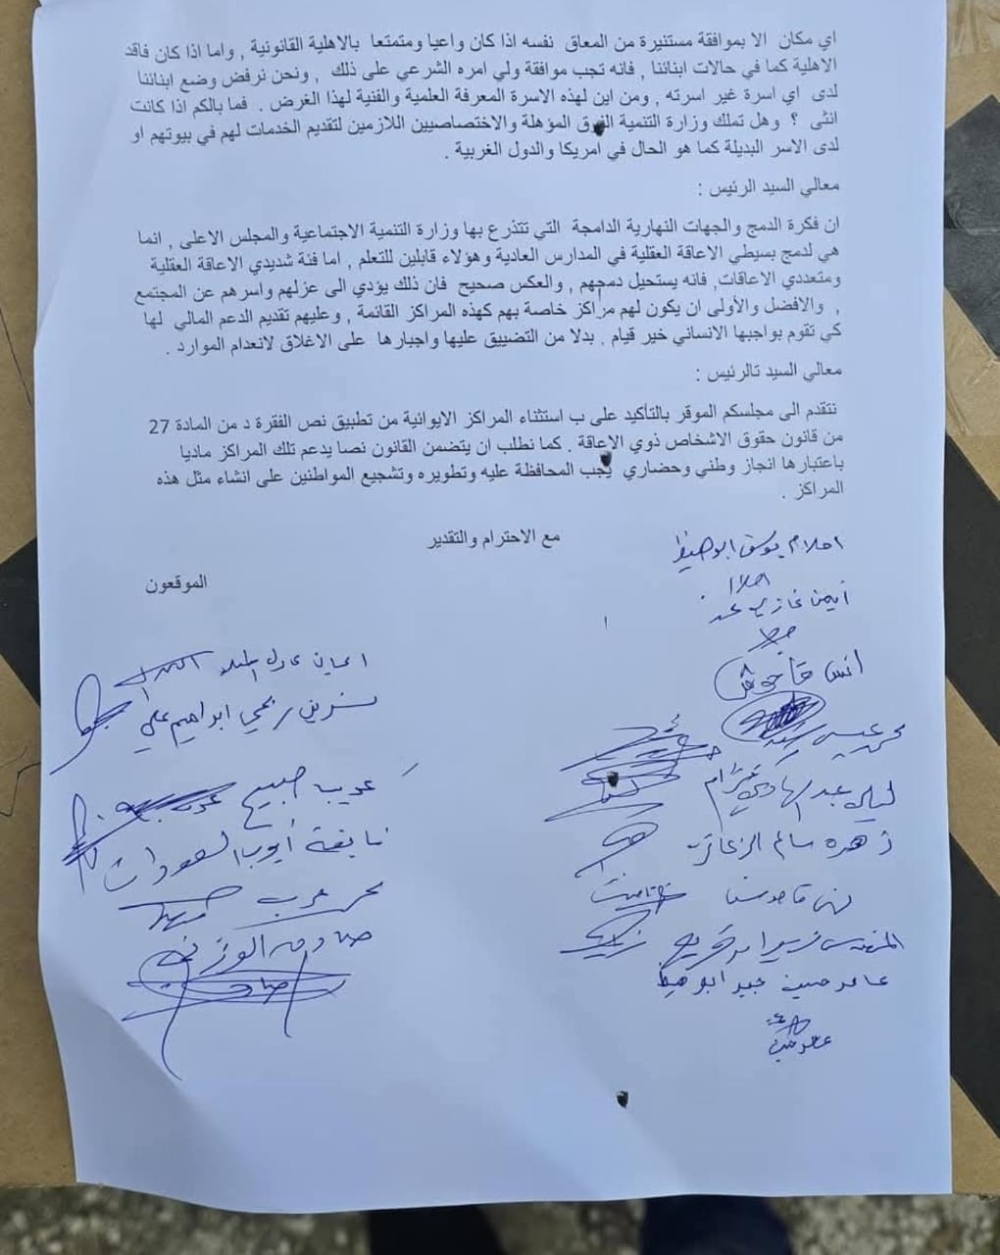 اي مكان الا بموافقة مستنيرة من المعاق نفسه اذا كان واعيا ومتمتعا بالاهلية القانونية , واما اذا كان فاقد
الاهلية كما في حالات ابنائنا , فانه تجب موافقة ولي امره الشرعي على ذلك , ونحن نرفض وضع ابنائنا
لدى اي اسرة غير اسرته , ومن اين لهذه الاسرة المعرفة العلمية والفنية لهذا الغرض . فما بالكم اذا كانت
انثى ؟ وهل تملك وزارة التنمية الفرق المؤهلة والاختصاصيين اللازمين لتقديم الخدمات لهم في بيوتهم او
لدى الاسر البديلة كما هو الحال في امريكا والدول الغربية .
معالي السيد الرئيس :
ان فكرة الدمج والجهات النهارية الدامجة التي تتذرع بها وزارة التنمية الاجتماعية والمجلس الاعلى , انما
هي لدمج بسيطي الاعاقة العقلية في المدارس العادية وهؤلاء قابلين للتعلم , اما فئة شديدي الاعاقة العقلية
ومتعددي الاعاقات, فانه يستحيل دمجهم , والعكس صحيح فان ذلك يؤدي الى عزلهم واسرهم عن المجتمع
, والافضل والأولى ان يكون لهم مراكز خاصة بهم كهذه المراكز القائمة , وعليهم تقديم الدعم المالي لها
كي تقوم بواجبها الانساني خير قيام , بدلا من التضييق عليها واجبارها على الاغلاق لانعدام الموارد .
معالي السيد تالرئيس :
نتقدم الى مجلسكم الموقر بالتأكيد على ب استثناء المراكز الايوائية من تطبيق نص الفقرة د من المادة 27
من قانون حقوق الاشخاص ذوي الإعاقة . كما نطلب ان يتضمن القانون نصا يدعم تلك المراكز ماديا
باعتبارها انجاز وطني وحضاري يجب المحافظة عليه وتطويره وتشجيع المواطنين على انشاء مثل هذه
المراكز .
مع الاحترام والتقدير
الموقعون
احلام يوسف ابو
احلام
ايمن غازي
انس
محمد عيسى
ليلى عبد الهادي
زهره سالم
المهندس
عامر حسين عبيد ابو
ايمان عادل
نسرين ابراهيم علي
عريب
نايفة أيوب السعودات
محمد عرب
صادق الوزني
صادق